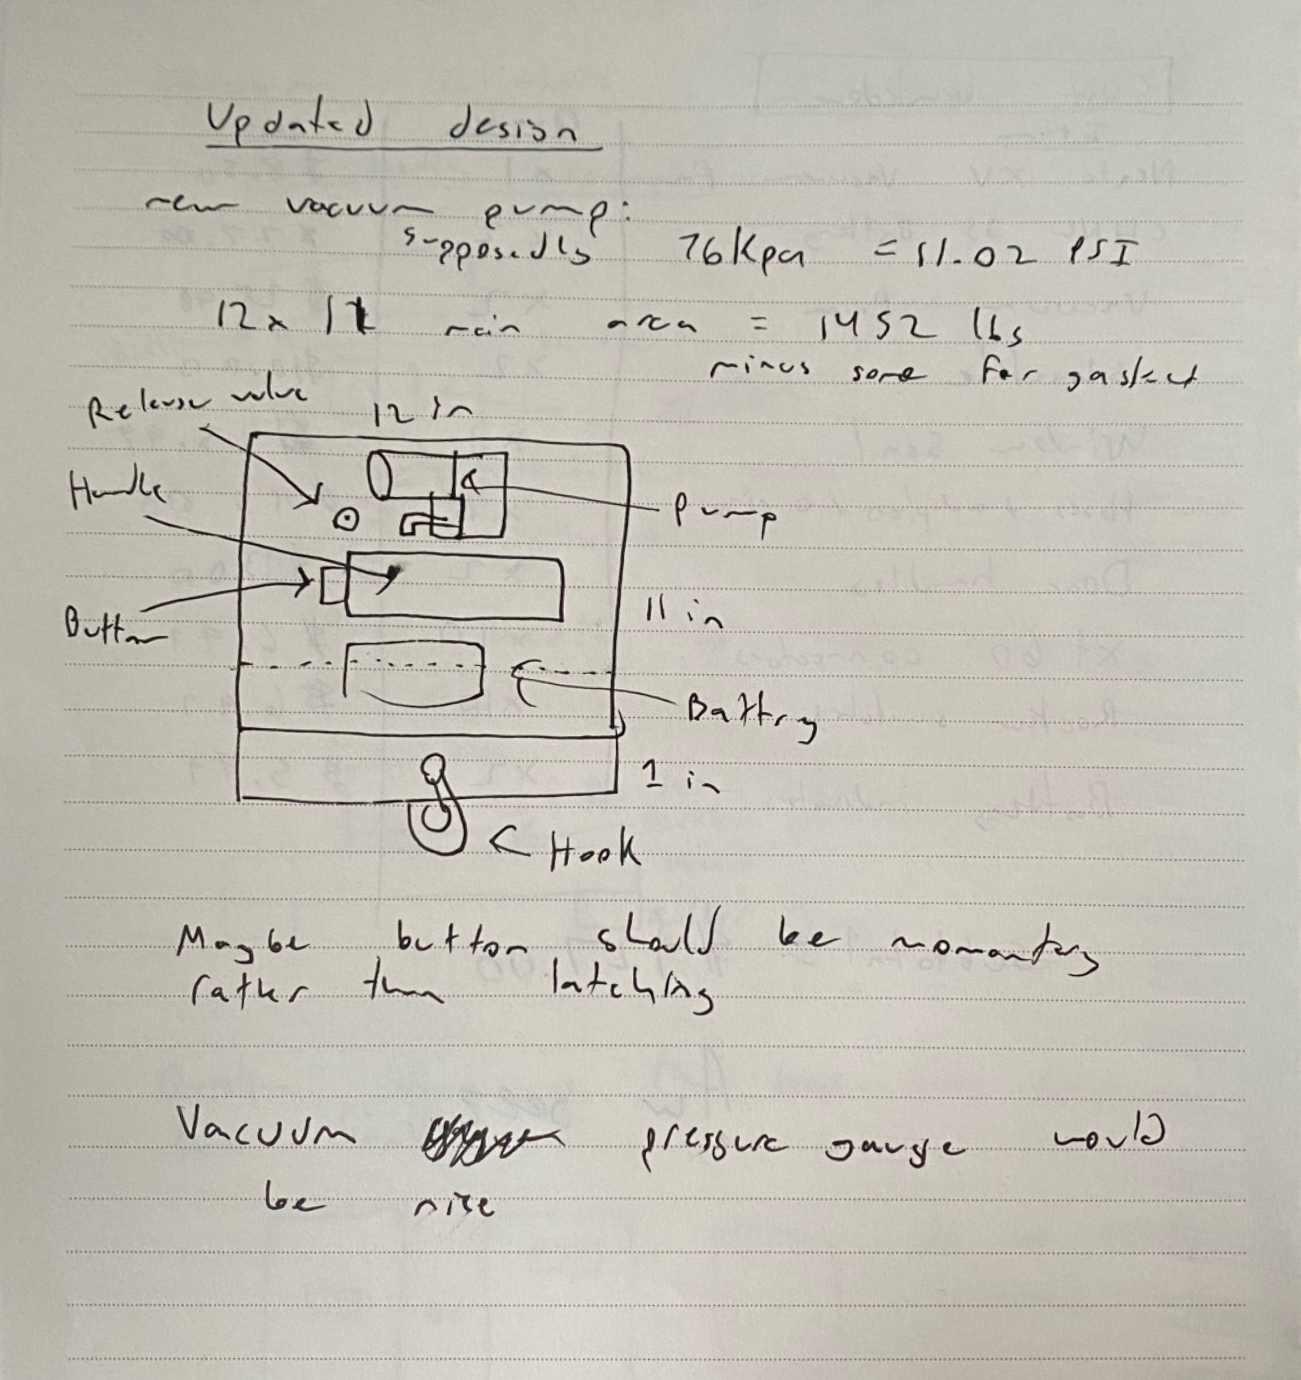 Updated design
new vacuum pump:
supposedly 76Kpa = 11.02 PSI
12 x 11 main area = 1452 lbs
minus some for gasket
Release valve
12 in
Handle
Pump
Button
11 in
Battery
1 in
Hook
Maybe button should be momentary
rather than latching
Vacuum pressure gauge would
be nice